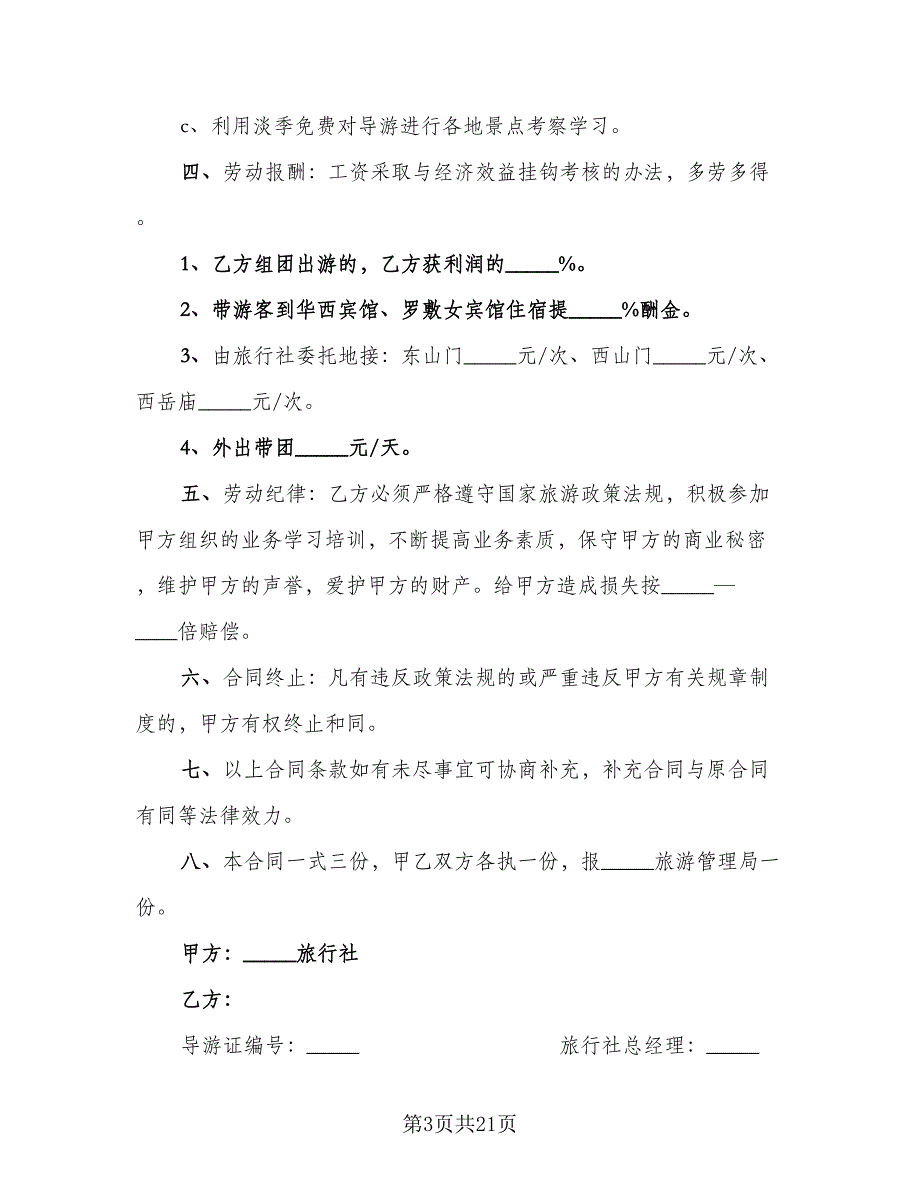 c、利用淡季免费对导游进行各地景点考察学习。
四、劳动报酬：工资采取与经济效益挂钩考核的办法，多劳多得
。
1、乙方组团出游的，乙方获利润的_____%。
2、带游客到华西宾馆、罗敷女宾馆住宿提_____%酬金。
3、由旅行社委托地接：东山门_____元/次、西山门_____元/次、
西岳庙_____元/次。
4、外出带团_____元/天。
五、劳动纪律：乙方必须严格遵守国家旅游政策法规，积极参加
甲方组织的业务学习培训，不断提高业务素质，保守甲方的商业秘密
，维护甲方的声誉，爱护甲方的财产。给甲方造成损失按_____—
____倍赔偿。
六、合同终止：凡有违反政策法规的或严重违反甲方有关规章制
度的，甲方有权终止和同。
七、以上合同条款如有未尽事宜可协商补充，补充合同与原合同
有同等法律效力。
八、本合同一式三份，甲乙双方各执一份，报_____旅游管理局一
份。
甲方：_____旅行社
乙方：
导游证编号：_____ 旅行社总经理：_____
第3页共21页